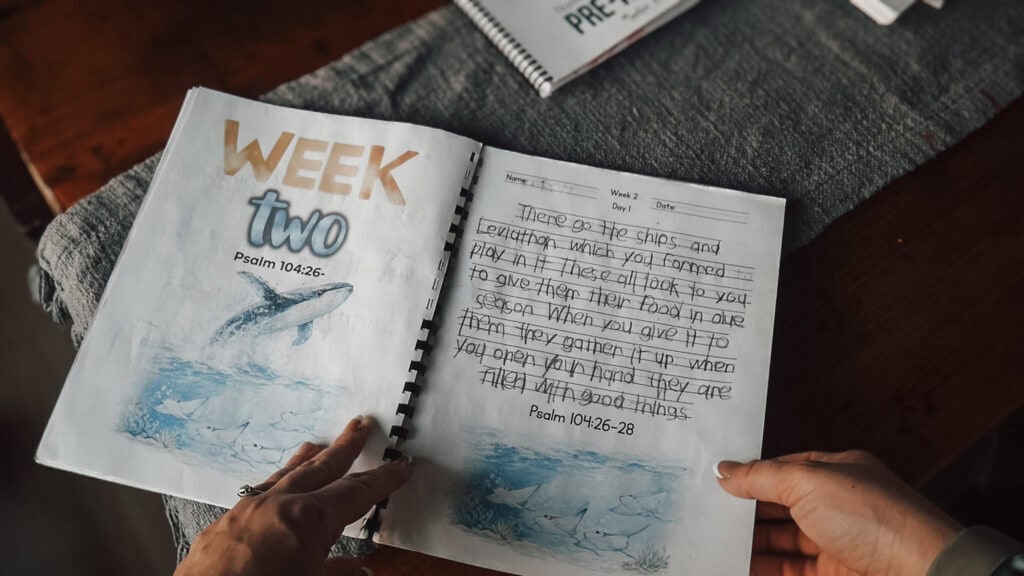 PRE-
WEEK
two
Psalm 104:26-
Name:
Week 2
Day 1
Date:
There go the ships and
Leviathan which you formed
play in it These all look to you
to give them their food in due
season When you give it to
them they gather it up when
you open your hand they are
filled with good things
Psalm 104:26-28